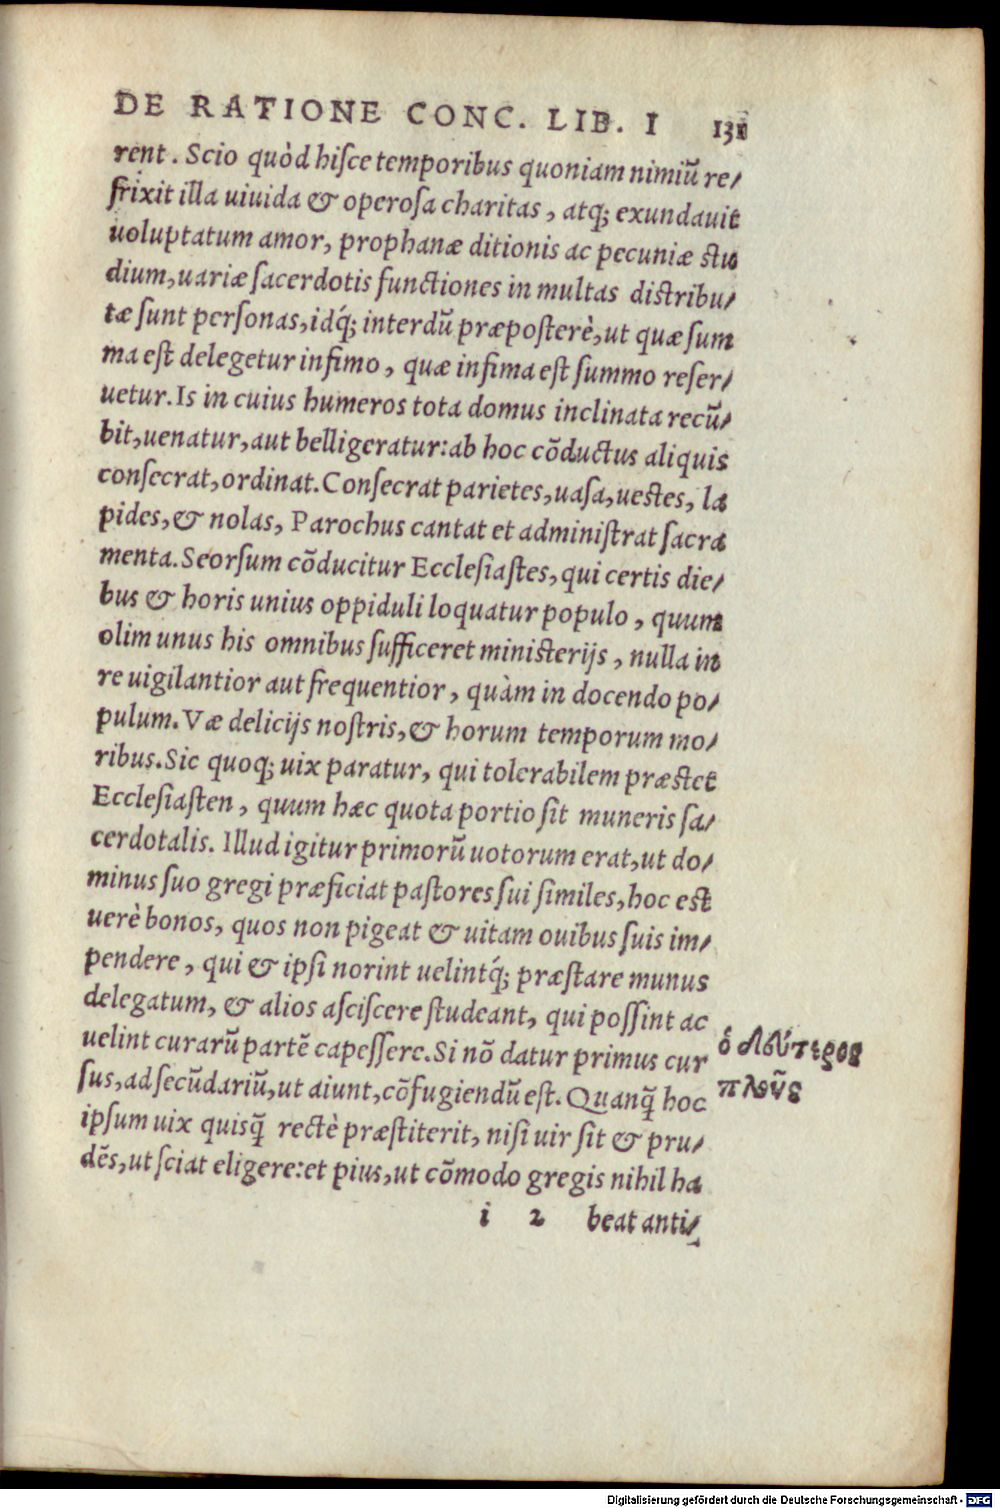 DE RATIONE CONC. LIB. I 131
rent. Scio quòd hisce temporibus quoniam nimiũ re/
frixit illa uiuida & operosa charitas, atq; exundauit
uoluptatum amor, prophanæ ditionis ac pecuniæ stu
dium, uariæ sacerdotis functiones in multas distribu/
tæ sunt personas, idq́; interdũ præposterè, ut quæ sum
ma est delegetur infimo, quæ infima est summo reser/
uetur. Is in cuius humeros tota domus inclinata recũ/
bit, uenatur, aut belligeratur: ab hoc cõductus aliquis
consecrat, ordinat. Consecrat parietes, uasa, uestes, la
pides, & nolas, Parochus cantat et administrat sacra
menta. Seorsum cõducitur Ecclesiastes, qui certis die/
bus & horis unius oppiduli loquatur populo, quum
olim unus his omnibus sufficeret ministerijs, nulla in
re uigilantior aut frequentior, quàm in docendo po/
pulum. Væ delicijs nostris, & horum temporum mo/
ribus. Sic quoq; uix paratur, qui tolerabilem præstet
Ecclesiasten, quum hæc quota portio sit muneris sa/
cerdotalis. Illud igitur primorũ uotorum erat, ut do/
minus suo gregi præficiat pastores sui similes, hoc est
uerè bonos, quos non pigeat & uitam ouibus suis im/
pendere, qui & ipsi norint uelintq́; præstare munus
delegatum, & alios asciscere studeant, qui possint ac
uelint curarũ partẽ capessere. Si nõ datur primus cur
sus, ad secũdariũ, ut aiunt, cõfugiendũ est. Quanq̃ hoc
ipsum uix quisq̃ rectè præstiterit, nisi uir sit & pru/
dẽs, ut sciat eligere: et pius, ut cõmodo gregis nihil ha
i 2 beat anti/
ὁ δεύτερος
πλοῦς
Digitalisierung gefördert durch die Deutsche Forschungsgemeinschaft - DFG